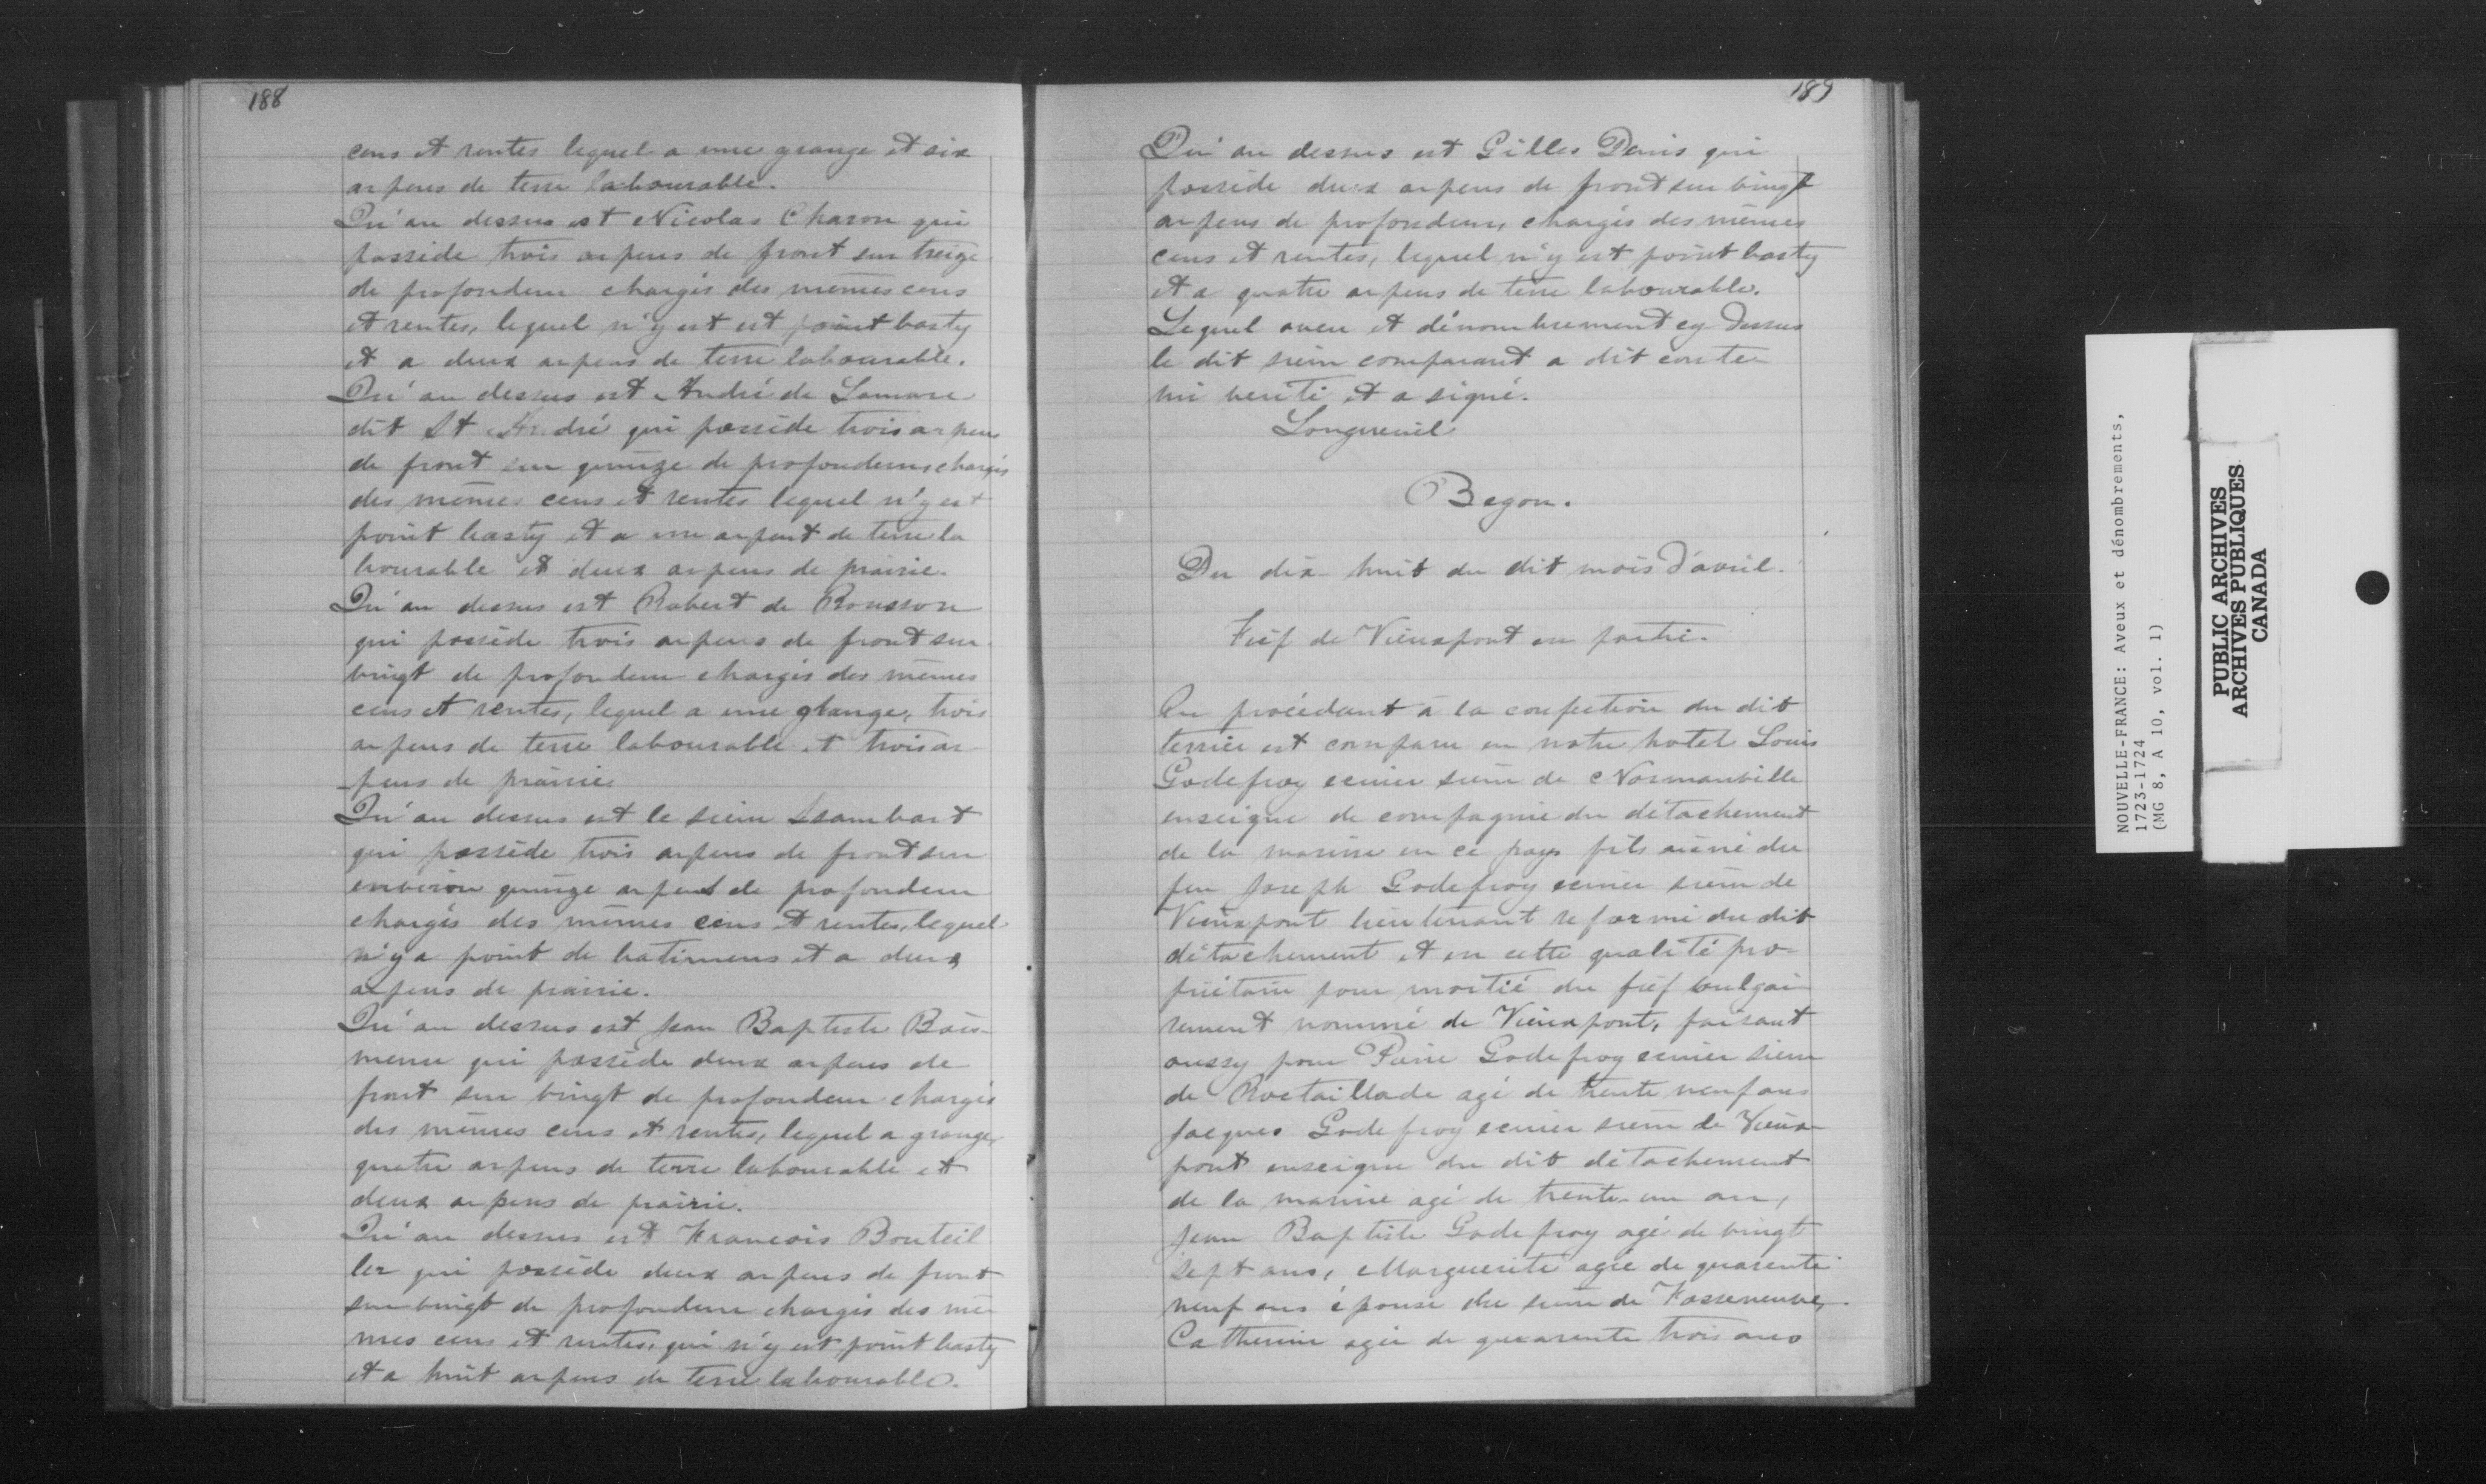 188
cens et rentes lequel a une grange et six
arpens de terre labourable.
Qu'au dessus est Nicolas Charon qui
possède trois arpens de front sur treize
de profondeur chargés des mêmes cens
et rentes, lequel n'y est est point basty
et a deux arpens de terre labourable.
Qu'au dessus est André de Lamare
dit St André qui possède trois arpens
de front sur quinze de profondeur chargés
des mêmes cens et rentes lequel n'y est
point basty et a un arpent de terre la
bourable et deux arpens de prairie.
Qu'au dessus est Robert de Rousson
qui possède trois arpens de front sur
vingt de profondeur chargés des mêmes
cens et rentes, lequel a une grange, trois
arpens de terre labourable et trois ar
pens de prairie
Qu'au dessus est le sieur Isambart
qui possède trois arpens de front sur
environ quinze arpens de profondeur
chargés des mêmes cens et rentes, lequel
n'y a point de batimens et a deux
arpens de prairie.
Qu'au dessus est Jean Baptiste Bois-
menu qui possède deux arpens de
front sur vingt de profondeur chargés
des mêmes cens et rentes, lequel a grange,
quatre arpens de terre labourable et
deux arpens de prairie.
Qu'au dessus est Francois Bouteil
ler qui possède deux arpens de front
sur vingt de profondeur chargés des mê
mes cens et rentes, qui n'y est point basty
et a huit arpens de terre labourable.
189
Qu'au dessus est Gilles Davis qui
possède deux arpens de front sur vingt
arpens de profondeur, chargés des mêmes
cens et rentes, lequel n'y est point basty
et a quatre arpens de terre labourable.
Lequel aveu et dénombrement cy dessus
le dit sieur comparant a dit conte-
nir verité et a signé.
Longueuil
Begon.
Du dix-huit du dit mois d'avril.
Fief de Vieuxpont en partie.
En procédant à la confection du dit
terrier est comparu en notre hotel Louis
Godefroy ecuier sieur de Normanville
enseigne de compagnie du détachement
de la marine en ce pays fils ainé du
feu Joseph Godefroy ecuier sieur de
Vieuxpont lieutenant reformé du dit
détachement et en cette qualité pro-
priétaire pour moitié du fief vulgai
rement nommé de Vieuxpont, faisant
aussy pour Pierre Godefroy ecuier sieur
de Roctaillade agé de trente neuf ans
Jacques Godefroy ecuier sieur de Vieux-
pont enseigne du dit détachement
de la marine agé de trente-un an,
Jean Baptiste Godefroy agé de vingt
sept ans, Marguerite agée de quarente
neuf ans épouse du sieur de Fosseneuve,
Catherine agée de quarante trois ans
NOUVELLE-FRANCE: Aveux et dénombrements,
1723-1724
(MG 8, A 10, vol. 1)
PUBLIC ARCHIVES
ARCHIVES PUBLIQUES
CANADA